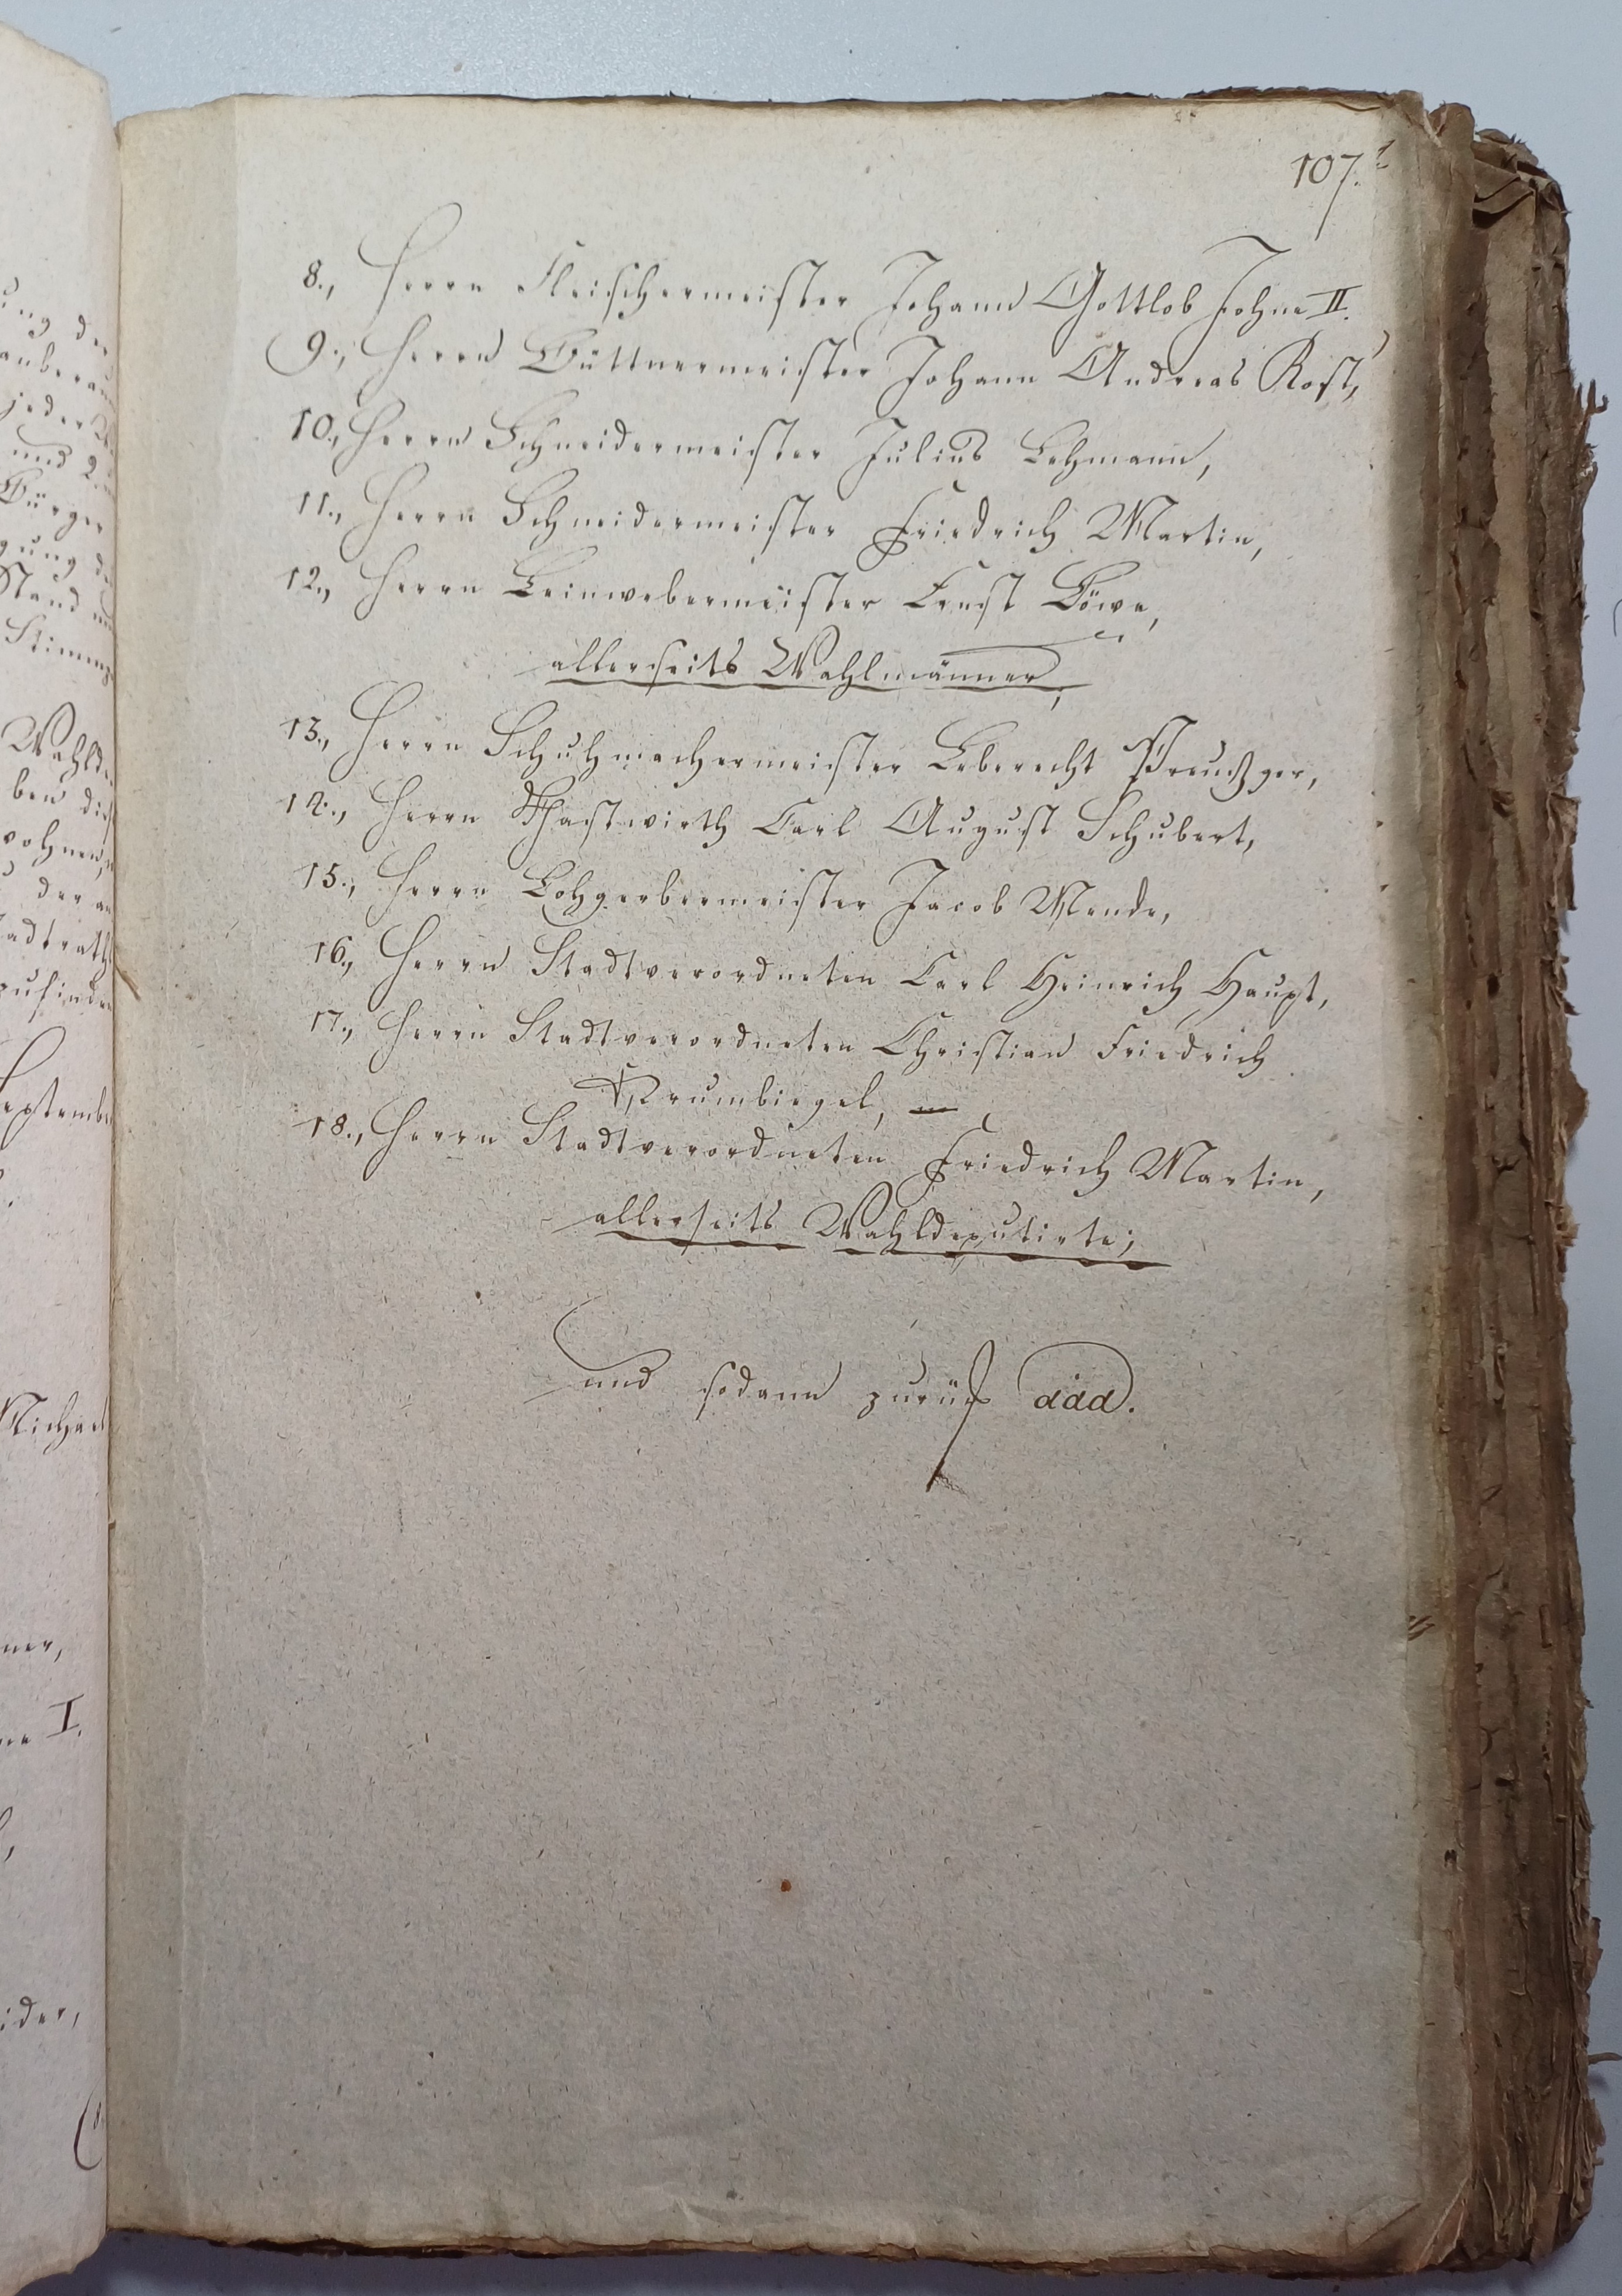 107.
8., Herrn Fleischermeister Johann Gottlob Johne II.
9., Herrn Büttnermeister Johann Andreas Rost,
10., Herrn Schneidermeister Julius Lehmann,
11., Herrn Schneidermeister Friedrich Martin,
12., Herrn Leinwebermeister Ernst Löwe,
allerseits Wahlmänner,
13., Herrn Schuhmachermeister Leberecht Preußger,
14., Herrn Gastwirth Carl August Schubert,
15., Herrn Lohgerbermeister Jacob Mende,
16., Herrn Stadtverordneten Carl Heinrich Haupt,
17., Herrn Stadtverordneten Christian Friedrich
Krumbiegel,
18., Herrn Stadtverordneten Friedrich Martin,
allerseits Wahldeputirte;
und sodann zurück